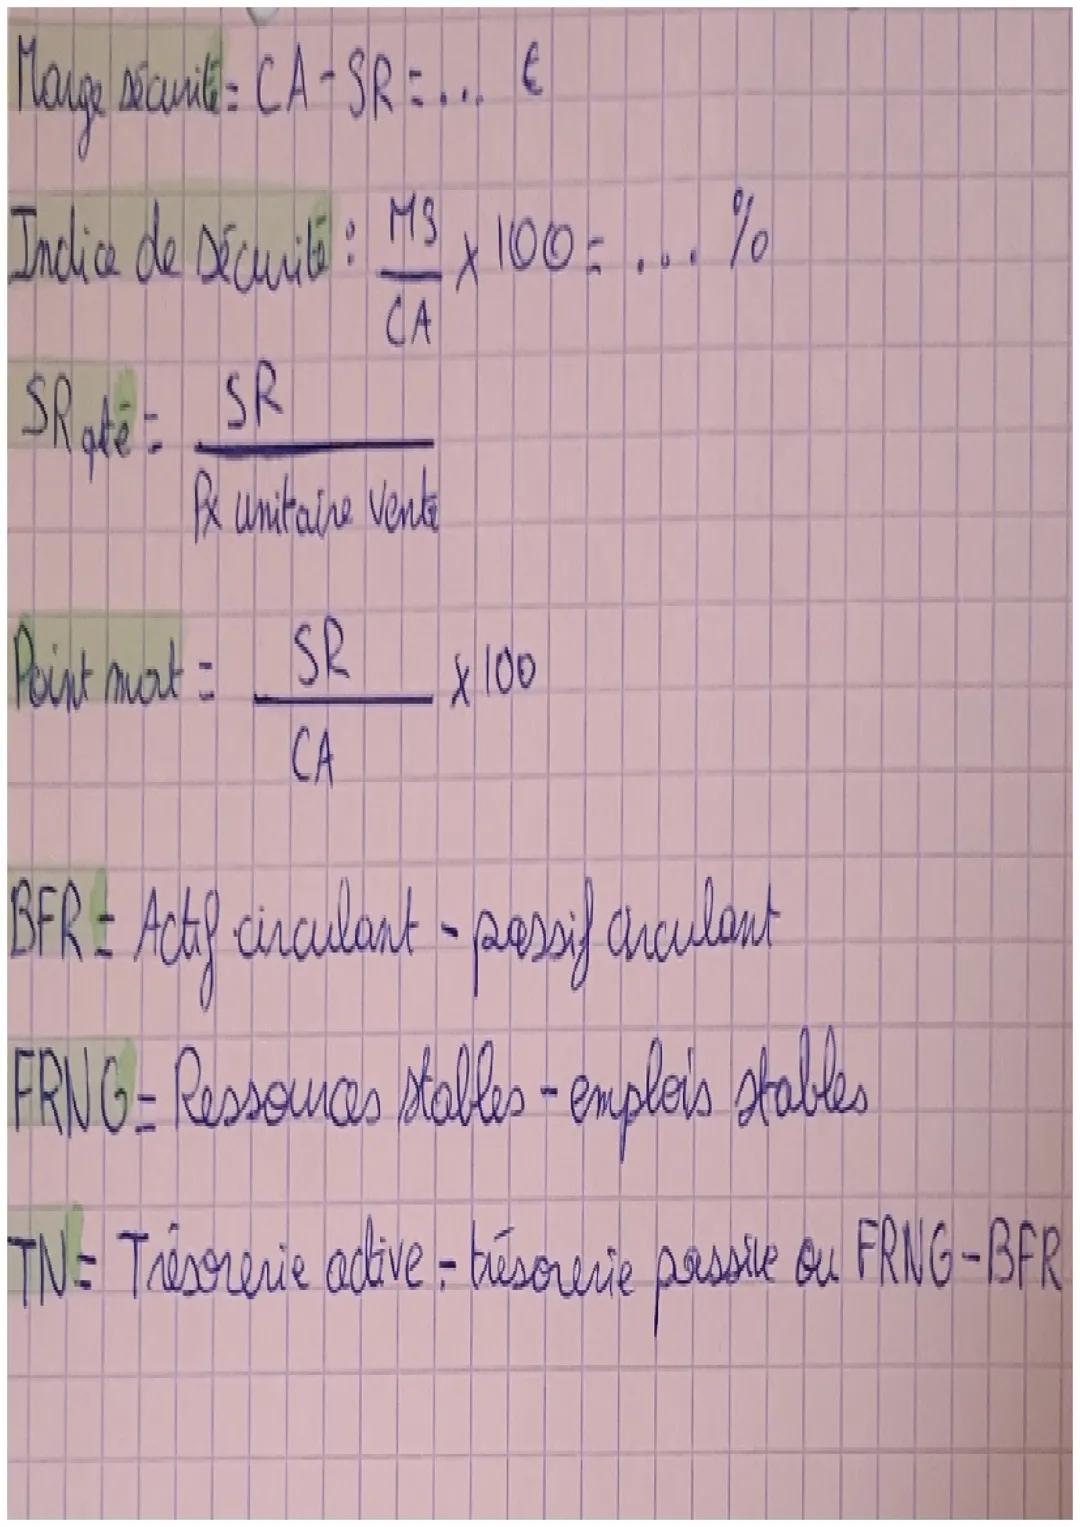 Marge sécurité = CA - SR = ... €
Indice de sécurité : MS / CA x 100 = ... %
SR qté = SR / Px unitaire vente
Point mort = SR / CA x 100
BFR = Actif circulant - passif circulant
FRNG = Ressources stables - emplois stables
TN = Trésorerie active - trésorerie passive ou FRNG - BFR